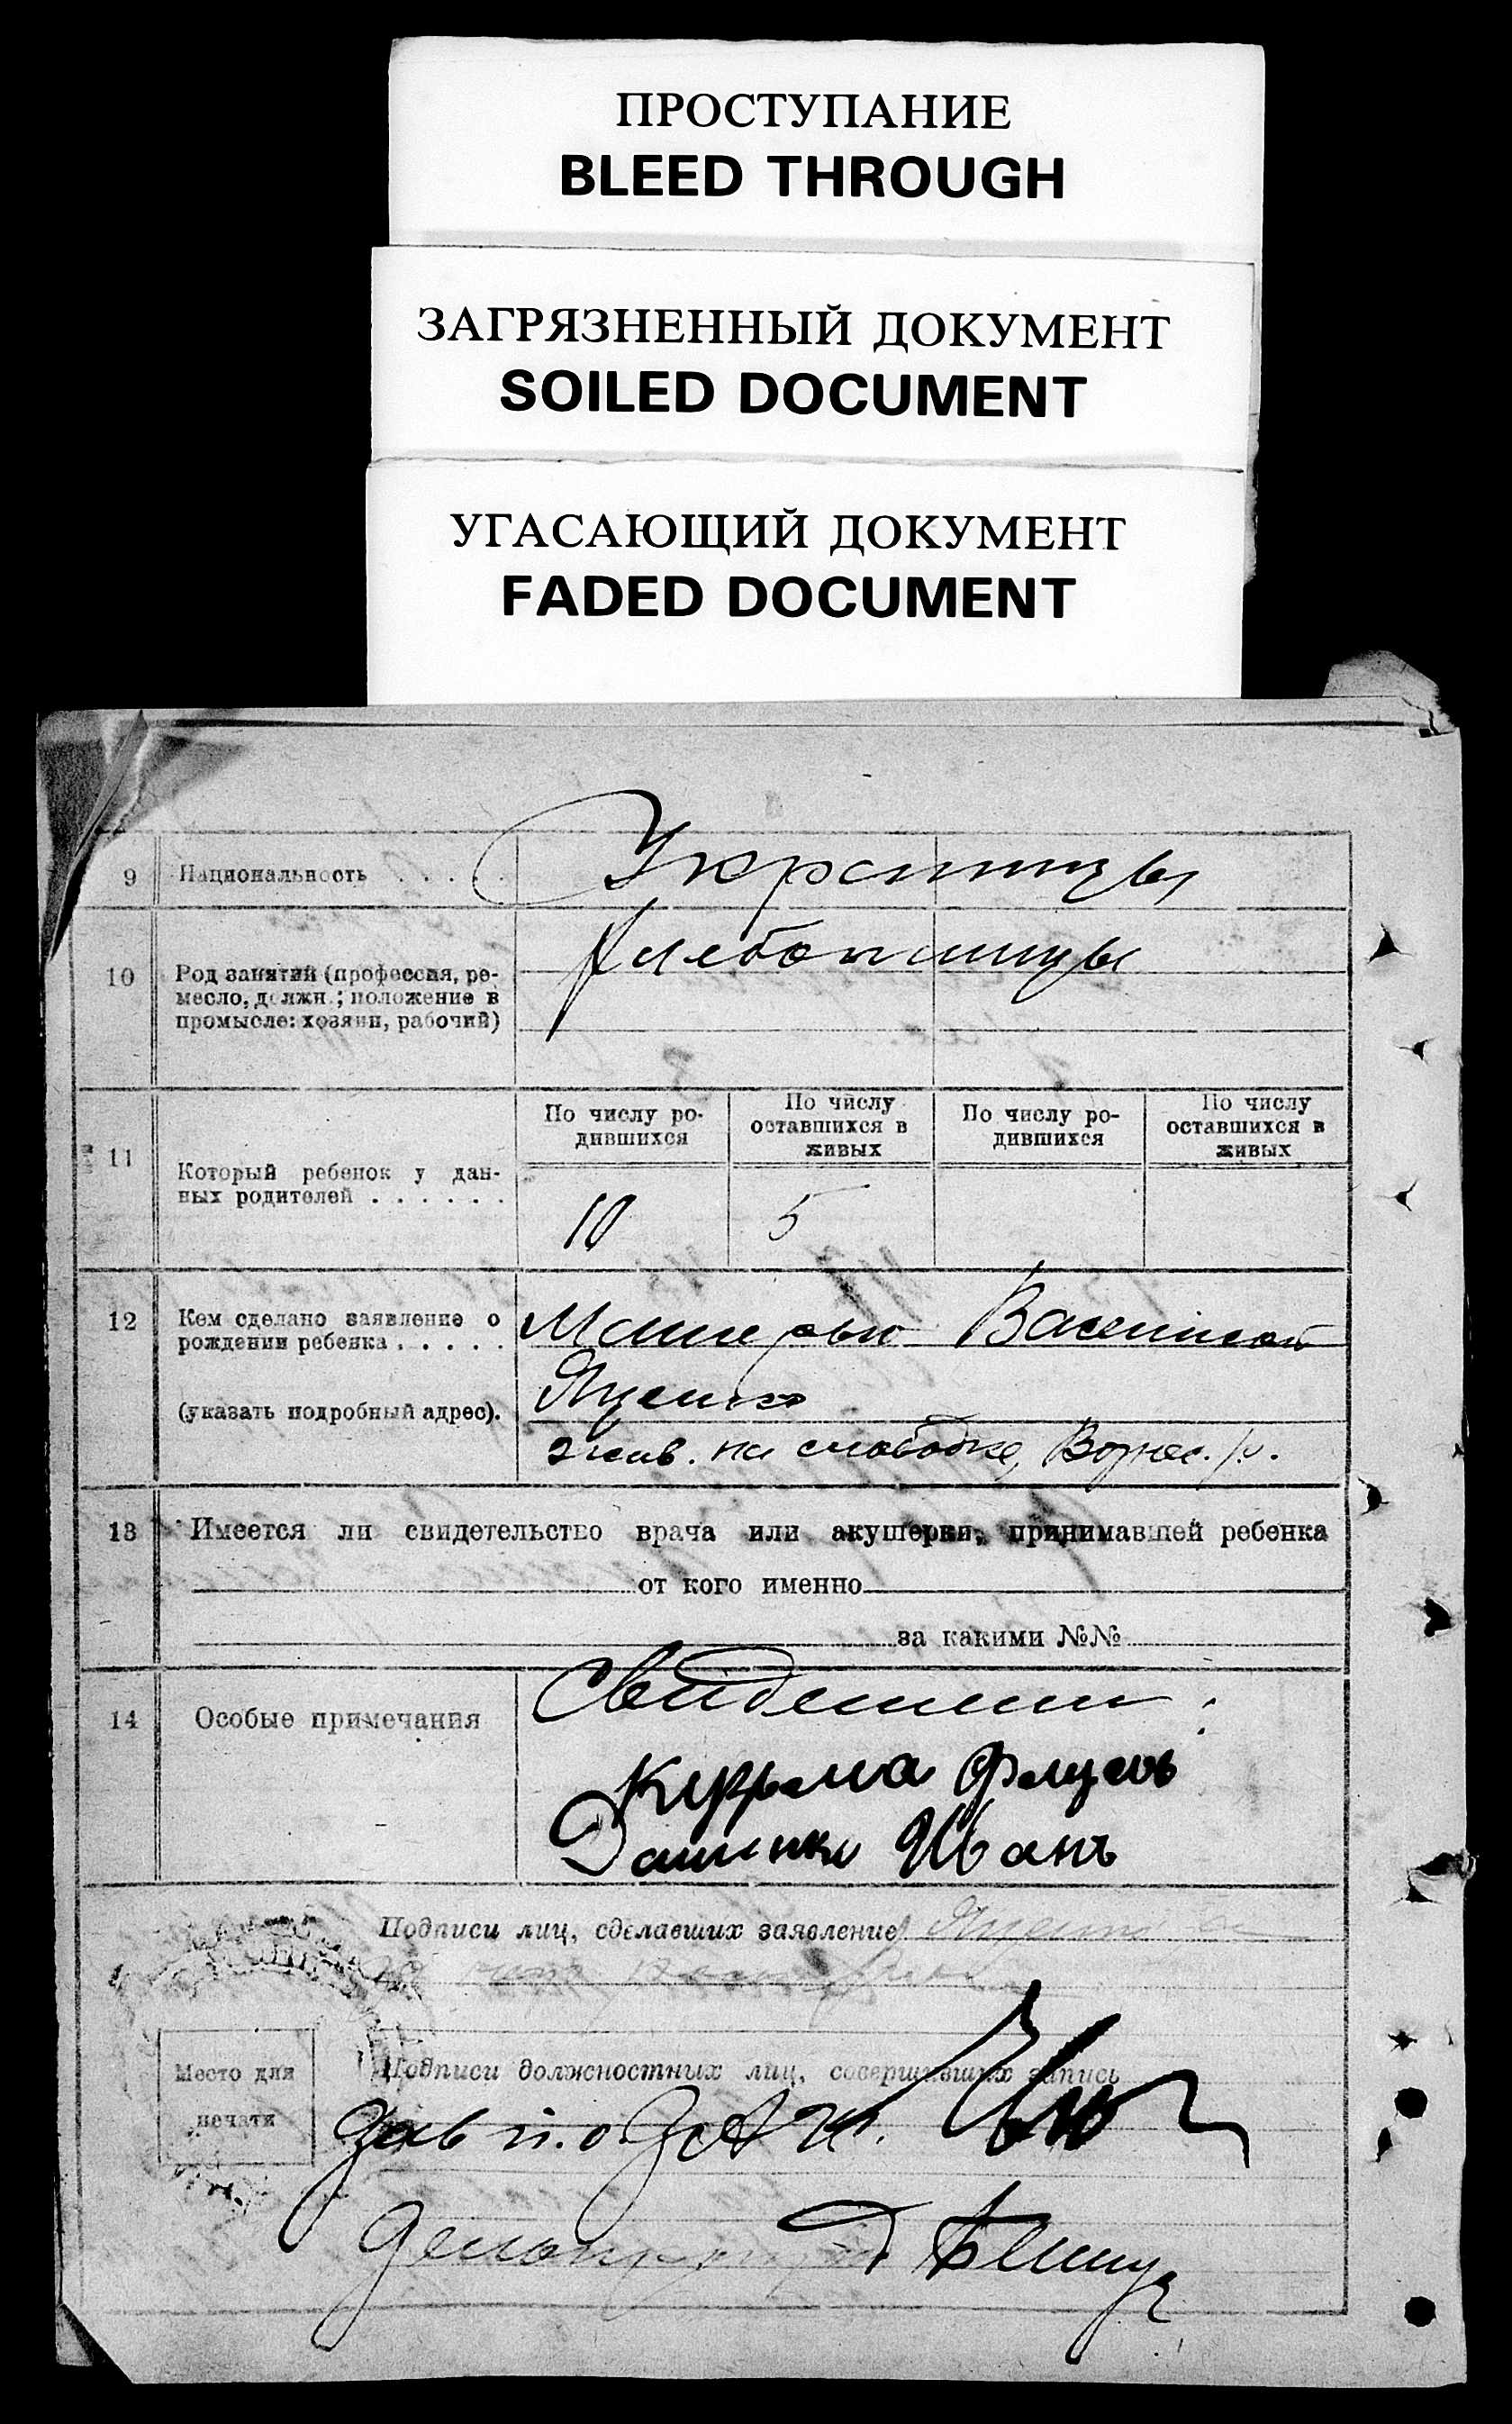 ПРОСТУПАНИЕ
BLEED THROUGH
ЗАГРЯЗНЕННЫЙ ДОКУМЕНТ
SOILED DOCUMENT
УГАСАЮЩИЙ ДОКУМЕНТ
FADED DOCUMENT
9 Национальность . . . . . Украинцы
10 Род занятий (профессия, ре-
месло, должн.; положение в
промысле: хозяин, рабочий)
Хлебопашцы
11 Который ребенок у дан-
ных родителей . . . . . .
По числу ро-
дившихся
По числу
оставшихся в
живых
По числу ро-
дившихся
По числу
оставшихся в
живых
10 5
12 Кем сделано заявление о
рождении ребенка . . . . .
(указать подробный адрес).
Матерью
Яценко
жив. на слободке, Вознес. р.
13 Имеется ли свидетельство врача или акушерки, принимавшей ребенка
от кого именно
за какими №№
14 Особые примечания
Свидетели:
Иванъ
Подписи лиц, сделавших заявление
Место для
печати
Подписи должностных лиц, совершивших запись
Зав п.о. ЗАГС